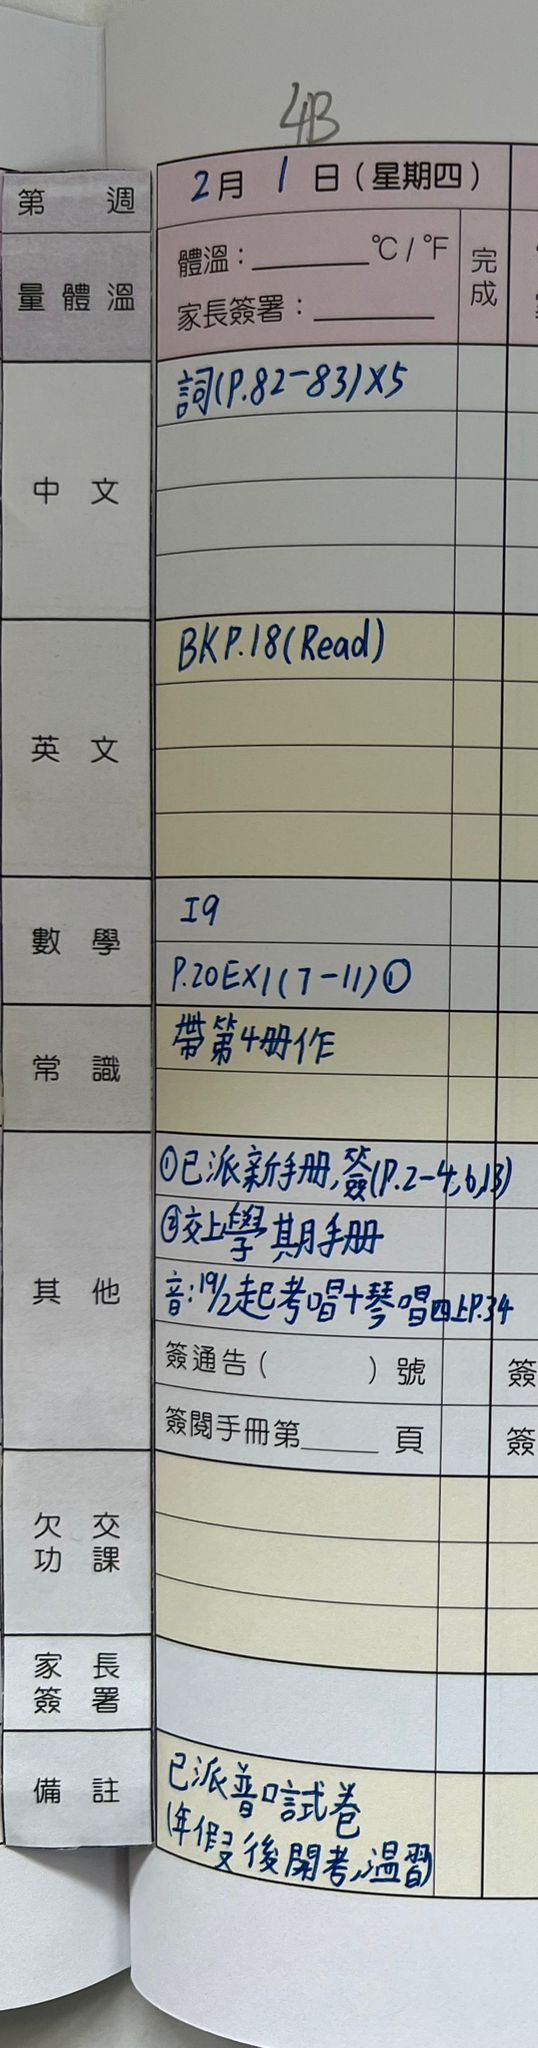 4B
第 週
2月 1 日(星期四)
量體溫
體溫:______℃/℉
完成
家長簽署:______
中文
詞(P.82-83)X5
英文
BKP.18(Read)
數學
I9
P.20EX1(7-11)①
常識
帶第4冊作
其他
①已派新手冊,簽(P.2-4,6,13)
②交上學期手冊
音:19/2起考唱+琴唱四上P.34
簽通告( )號
簽
簽閱手冊第______頁
簽
欠交功課
家長簽署
備註
已派普口試卷
(年假後開考,温習)